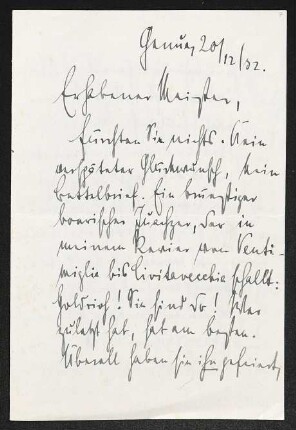 Genua, 20/12/32.
Erhabener Meister,
fürchten Sie nichts. Kein
verspäteter Glückwunsch, kein
Bettelbrief. Ein brünstiger
boarischer Juchzer, der in
meinem Revier von Venti-
miglia bis Civitavecchia schallt:
Holdrioh! Sie sind do! Wer
zuletzt hat, hat am besten.
Überall haben sie ihn gefeiert,